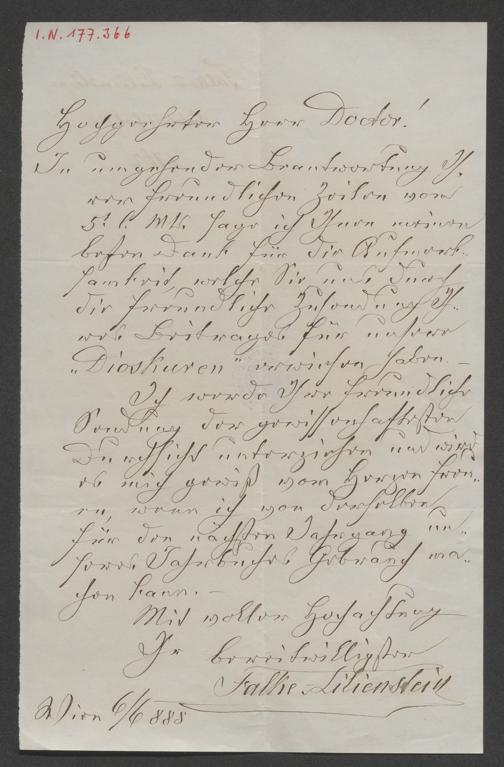 I.N. 177.366
Hochgeehrter Herr Doctor!
In umgehender Beantwortung Ih-
rer freundlichen Zeilen vom
5t. l. Mts. sage ich Ihnen meinen
besten Dank für die Aufmerk-
samkeit, welche Sie uns durch
die freundliche Zusendung Ih-
res Beitrages für unsere
„Dioskuren" erwiesen haben. –
Ich werde Ihre freundliche
Sendung der gewissenhaftesten
Durchsicht unterziehen und wird
es mich gewiß vom Herzen freu-
en, wenn ich von derselben
für den nächsten Jahrgang un-
seres Jahrbuches Gebrauch ma-
chen kann. –
Mit voller Hochachtung
Ihr bereitwilligster
Falke Lilienstein
Wien 6/6 888